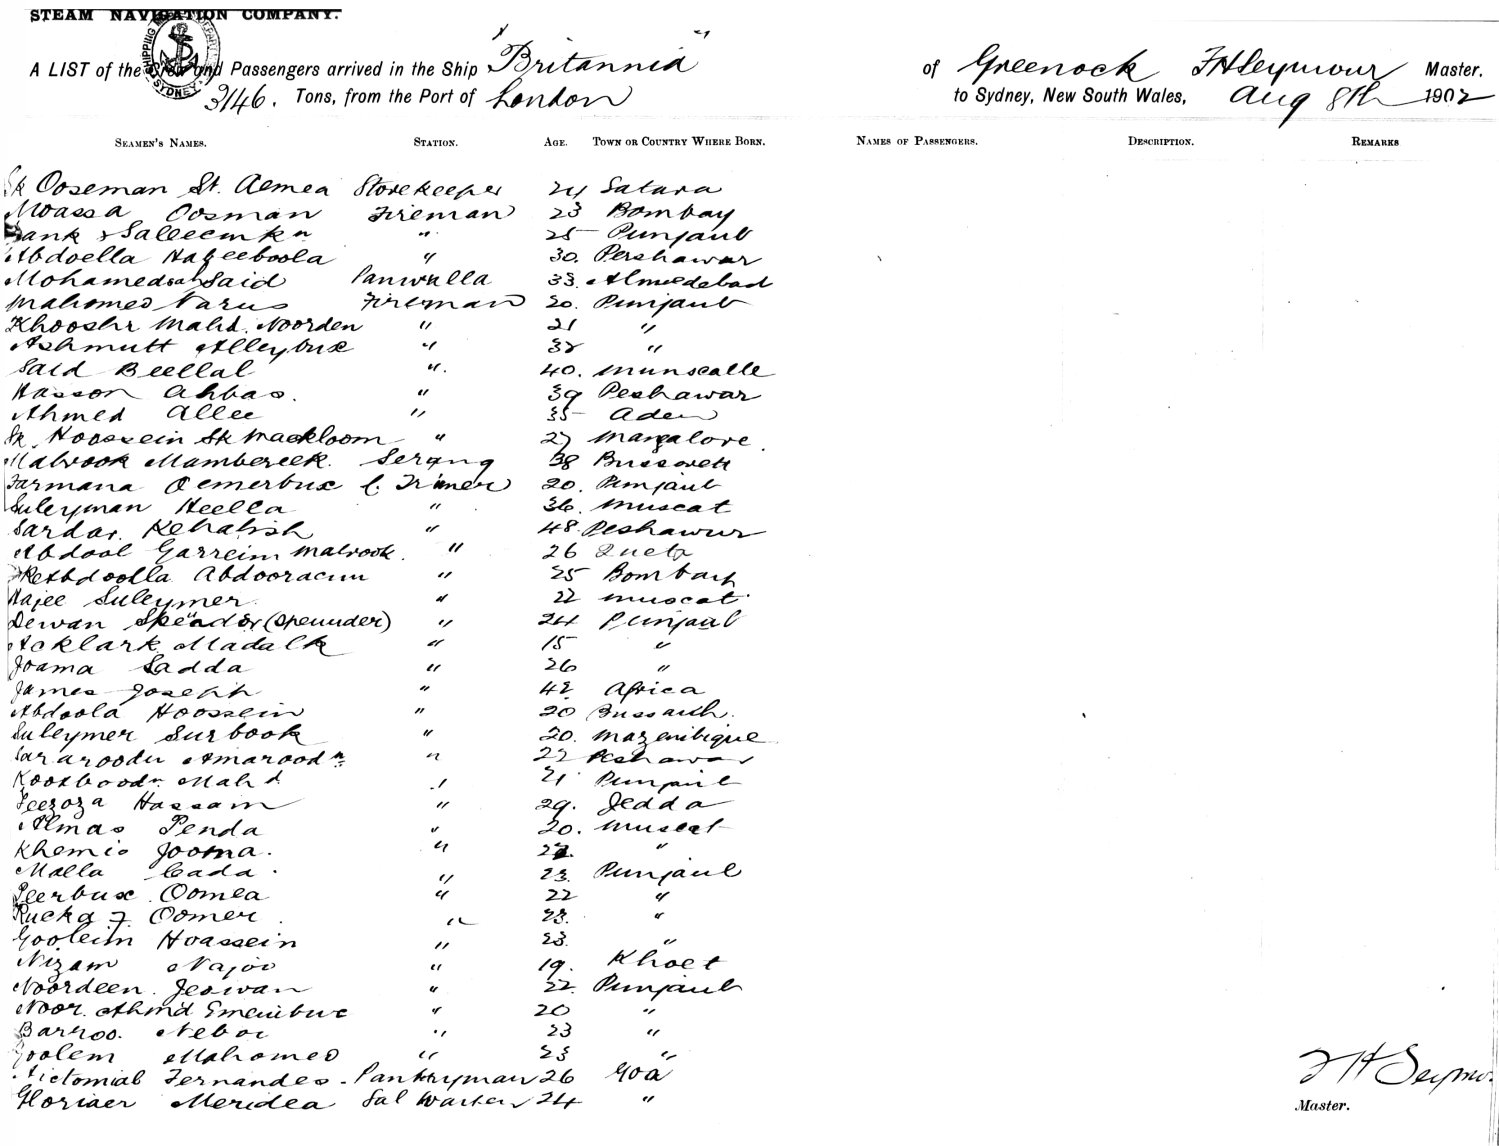 STEAM NAVIGATION COMPANY.
SHIPPING SYDNEY
A LIST of the Crew and Passengers arrived in the Ship "Britannia" of Greenock F H Seymour Master.
3146. Tons, from the Port of London to Sydney, New South Wales, Aug 8th 1902
SEAMEN'S NAMES. STATION. AGE. TOWN OR COUNTRY WHERE BORN. NAMES OF PASSENGERS. DESCRIPTION. REMARKS
Sk Ooseman St. Aemea Storekeeper 24 Satara
Moassa Oosman Fireman 23 Bombay
" 25 Punjaub
Abdoella Hajeeboola " 30. Peshawar
Mohamed Said Panwulla 33. Ahmedebad
Mahomed Varus Fireman 20. Punjaub
Khooshi Mahd. Noorden " 21 "
Ashmutt Alleybux " 32 "
Said Beellal ". 40. Munscalle
Hasson Abbas. " 39 Peshawar
Ahmed Allee " 35 Aden
Sk. Hoossein Sk Mackloom " 27 Mangalore.
Mabrook Mambereek. Serang 38
Farmana Oemerbux C. Trimer 20. Punjaub
Suleyman Heella " 36. Muscat
Sardar. Kehabish " 48. Peshawur
Abdool Garreim Mabrook. " 26 Queta
Abdooracum " 25 Bombay
Hajee Suleymer. " 22 Muscat
Dewan Speader (Speunder) " 24 Punjaub
Acklark Madalk " 15 "
Joama Sadda " 26 "
James Joseph " 42 Africa
Abdoola Hoossein " 20 Bussarh.
Suleymer Surbook " 20. Mazenibique
Sararoodu Amarood " 22 Peshawar
Kootboodn Mahd " 21 Punjaub
Feezoza Hassam " 29. Jedda
Almas Penda " 20. Muscat
Khemis Jooma. " 22. "
Malla Cada. " 23. Punjaub
Peerbux Oomea " 22 "
Rucka Oomer. " 23. "
Gooleim Hoassein " 23. "
Nizam Najoo " 19. Khoet
Noordeen Jeowan " 22 Punjaub
Noor. Ahmd Emambux " 20 "
Barroo. Neboi " 23 "
Goolem Mahomed " 23 "
Fernandes. Pantryman 26 Goa
Gloriaer Meridea Sal Waiter 24 "
F H Seymour
Master.